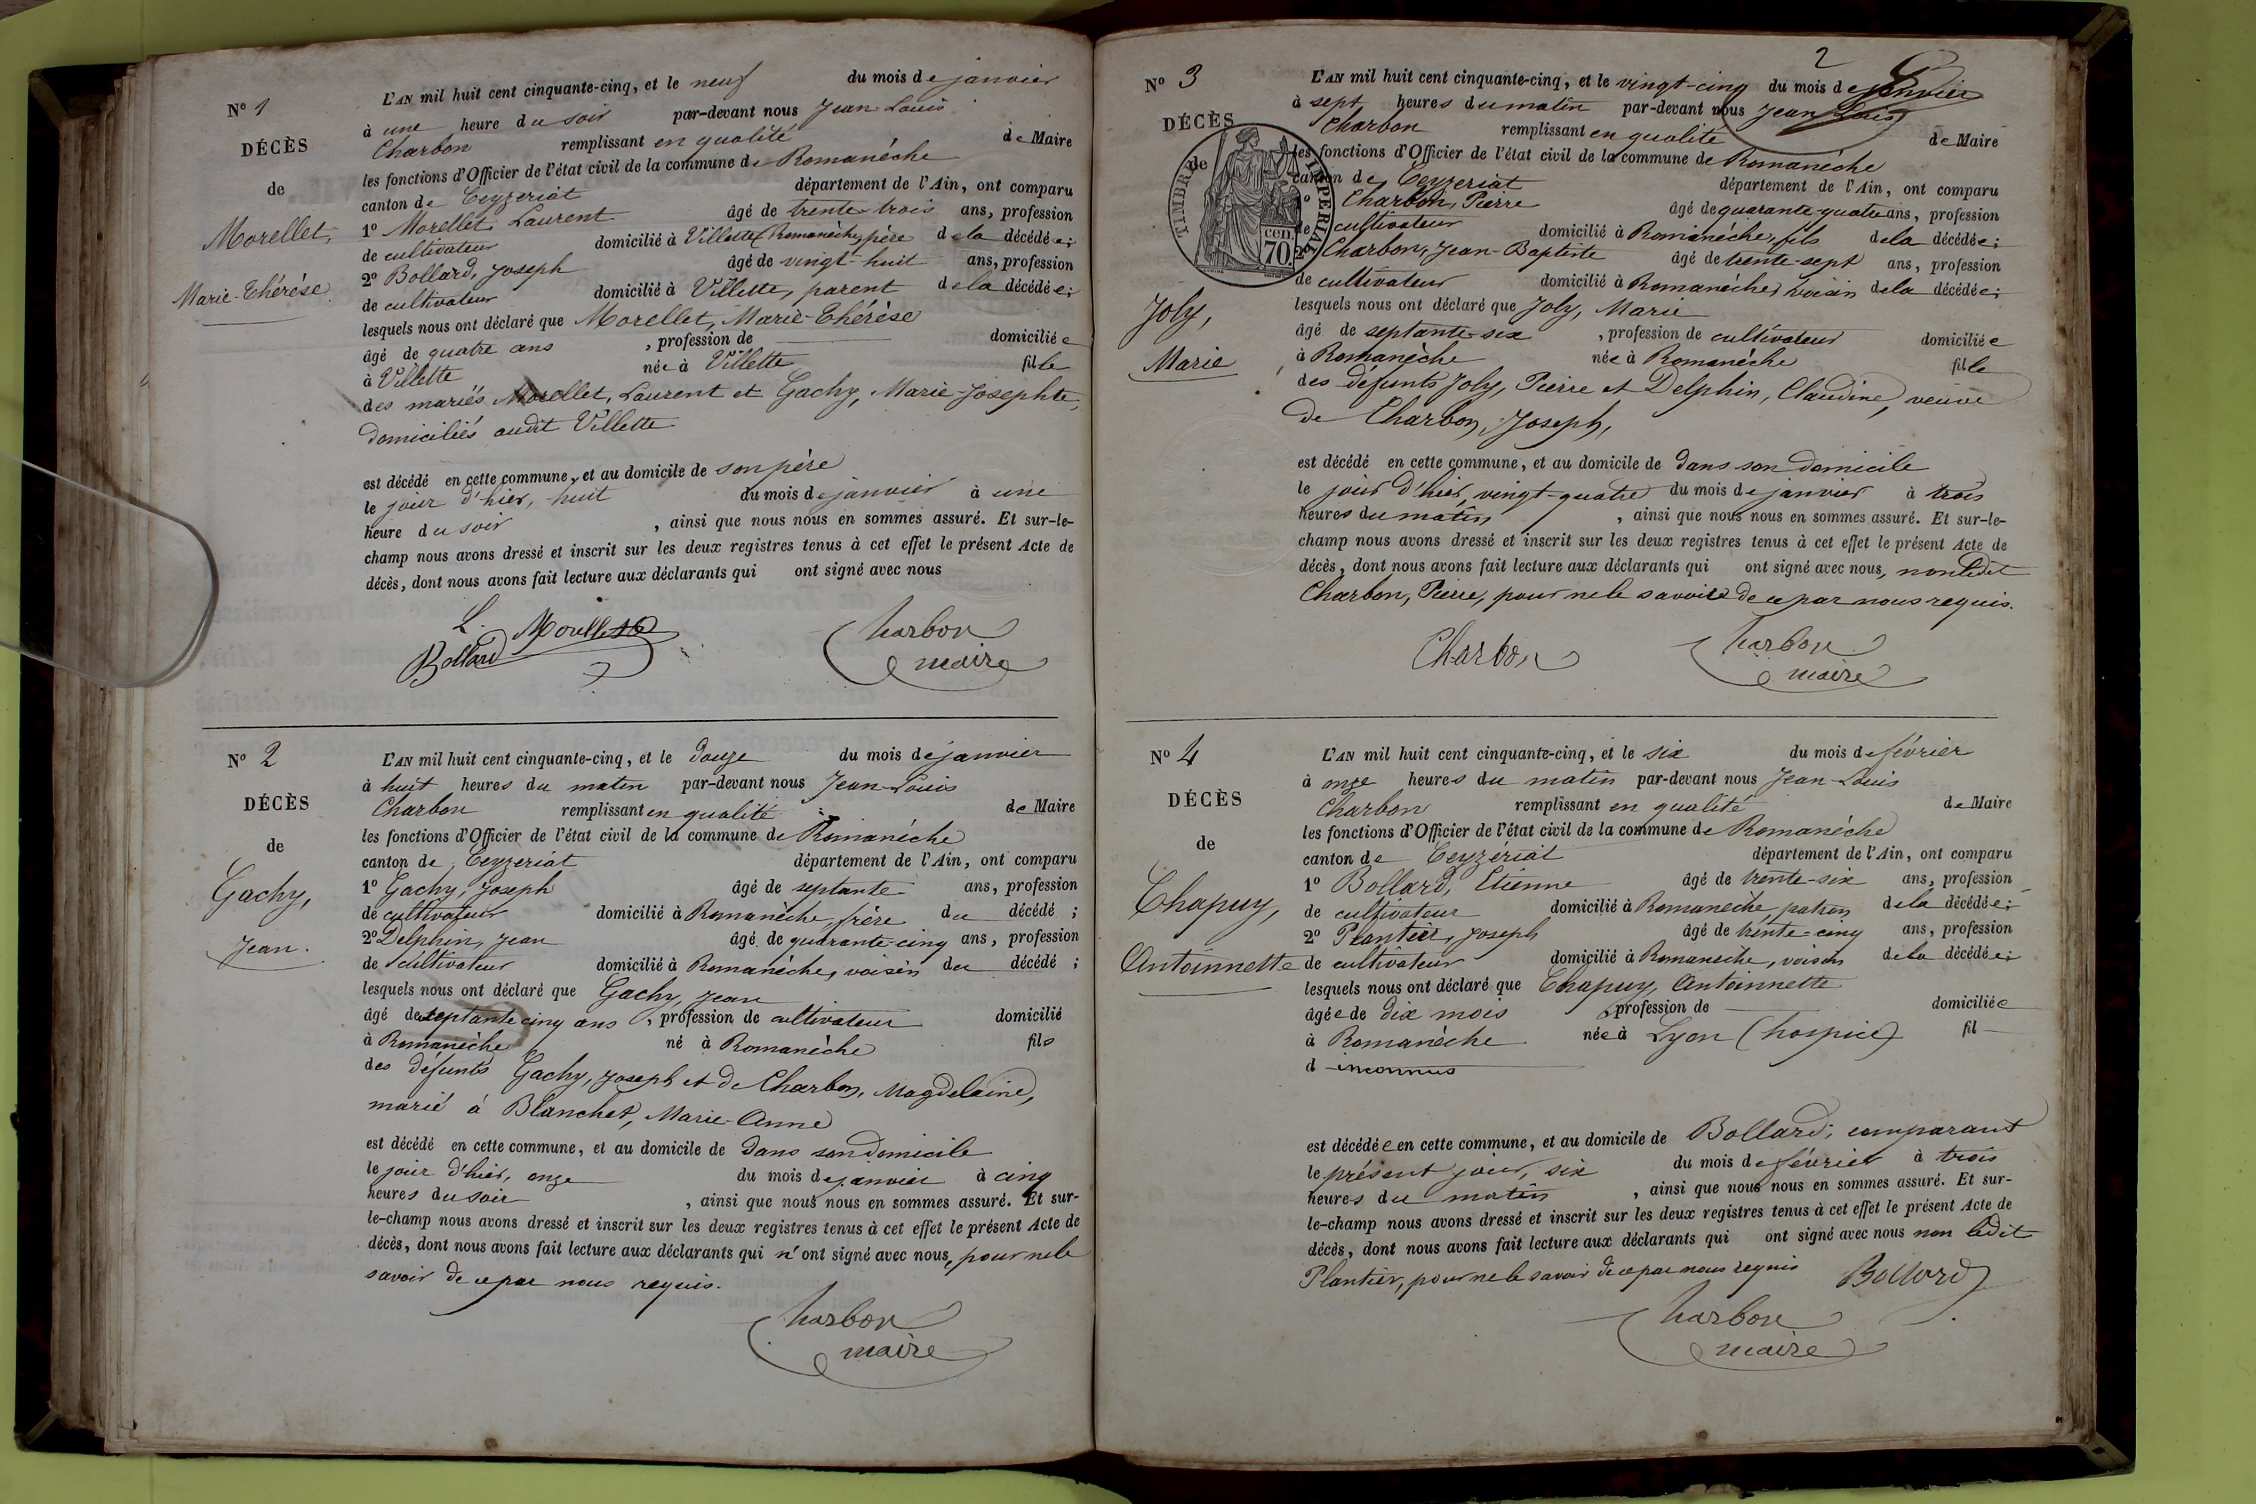 N° 1
DÉCÈS
de
Morellet,
Marie-Thérèse
L'AN mil huit cent cinquante-cinq, et le neuf du mois de janvier
à une heure du soir par-devant nous Jean-Louis
Charbon remplissant en qualité de Maire
les fonctions d'Officier de l'état civil de la commune de Romanêche
canton de Ceyzeriat département de l'Ain, ont comparu
1° Morellet, Laurent âgé de trente-trois ans, profession
de cultivateur domicilié à Villette (Romanêche) père de la décédée;
2° Bollard, Joseph âgé de vingt-huit ans, profession
de cultivateur domicilié à Villette, parent de la décédée;
lesquels nous ont déclaré que Morellet, Marie-Thérèse
âgé de quatre ans , profession de domiciliée
à Villette née à Villette fille
des mariés Morellet, Laurent et Gachy, Marie-Josephte,
domiciliés audit Villette
est décédé en cette commune, et au domicile de son père
le jour d'hier, huit du mois de janvier à une
heure du soir , ainsi que nous nous en sommes assuré. Et sur-le-
champ nous avons dressé et inscrit sur les deux registres tenus à cet effet le présent Acte de
décès, dont nous avons fait lecture aux déclarants qui ont signé avec nous
L. Morellet
Bollard
Charbon
maire
N° 2
DÉCÈS
de
Gachy,
Jean.
L'AN mil huit cent cinquante-cinq, et le douze du mois de janvier
à huit heures du matin par-devant nous Jean-Louis
Charbon remplissant en qualité de Maire
les fonctions d'Officier de l'état civil de la commune de Romanêche
canton de Ceyzeriat département de l'Ain, ont comparu
1° Gachy, Joseph âgé de septante ans, profession
de cultivateur domicilié à Romanêche, frère du décédé ;
2° Delphin, Jean âgé de quarante-cinq ans, profession
de cultivateur domicilié à Romanêche, voisin du décédé ;
lesquels nous ont déclaré que Gachy, Jean
âgé de septante cinq ans , profession de cultivateur domicilié
à Romanêche né à Romanêche fils
des défunts Gachy, Joseph et de Charbon, Magdelaine,
marié à Blanchet, Marie-Anne
est décédé en cette commune, et au domicile de dans son domicile
le jour d'hier, onze du mois de janvier à cinq
heures du soir , ainsi que nous nous en sommes assuré. Et sur-
le-champ nous avons dressé et inscrit sur les deux registres tenus à cet effet le présent Acte de
décès, dont nous avons fait lecture aux déclarants qui n'ont signé avec nous, pour ne le
savoir de ce par nous requis.
Charbon
maire
2
N° 3
DÉCÈS
de
TIMBRE IMPERIAL
70 cen.
Joly,
Marie
L'AN mil huit cent cinquante-cinq, et le vingt-cinq du mois de janvier
à sept heures du matin par-devant nous Jean-Louis
Charbon remplissant en qualité de Maire
les fonctions d'Officier de l'état civil de la commune de Romanêche
canton de Ceyzeriat département de l'Ain, ont comparu
1° Charbon, Pierre âgé de quarante-quatre ans, profession
de cultivateur domicilié à Romanêche, fils de la décédée;
2° Charbon, Jean-Baptiste âgé de trente-sept ans, profession
de cultivateur domicilié à Romanêche, voisin de la décédée;
lesquels nous ont déclaré que Joly, Marie
âgé de septante-six , profession de cultivateur domiciliée
à Romanêche née à Romanêche fille
des défunts Joly, Pierre et Delphin, Claudine, veuve
de Charbon, Joseph,
est décédé en cette commune, et au domicile de dans son domicile
le jour d'hier, vingt-quatre du mois de janvier à trois
heures du matin , ainsi que nous nous en sommes assuré. Et sur-le-
champ nous avons dressé et inscrit sur les deux registres tenus à cet effet le présent Acte de
décès, dont nous avons fait lecture aux déclarants qui ont signé avec nous, non ledit
Charbon, Pierre, pour ne le savoir de ce par nous requis.
Charbon
Charbon
maire
N° 4
DÉCÈS
de
Chapuy,
Antoinnette
L'AN mil huit cent cinquante-cinq, et le six du mois de février
à onze heures du matin par-devant nous Jean-Louis
Charbon remplissant en qualité de Maire
les fonctions d'Officier de l'état civil de la commune de Romanêche
canton de Ceyzériat département de l'Ain, ont comparu
1° Bollard, Etienne âgé de trente-six ans, profession
de cultivateur domicilié à Romanêche, patron de la décédée;
2° Plantier, Joseph âgé de trente-cinq ans, profession
de cultivateur domicilié à Romanêche, voisin de la décédée;
lesquels nous ont déclaré que Chapuy, Antoinnette
âgée de dix mois , profession de domiciliée
à Romanêche née à Lyon (hospice) fil
d inconnus
est décédée en cette commune, et au domicile de Bollard, comparant
le présent jour, six du mois de février à trois
heures du matin , ainsi que nous nous en sommes assuré. Et sur-
le-champ nous avons dressé et inscrit sur les deux registres tenus à cet effet le présent Acte de
décès, dont nous avons fait lecture aux déclarants qui ont signé avec nous non ledit
Plantier, pour ne le savoir de ce par nous requis Bollard
Charbon
maire